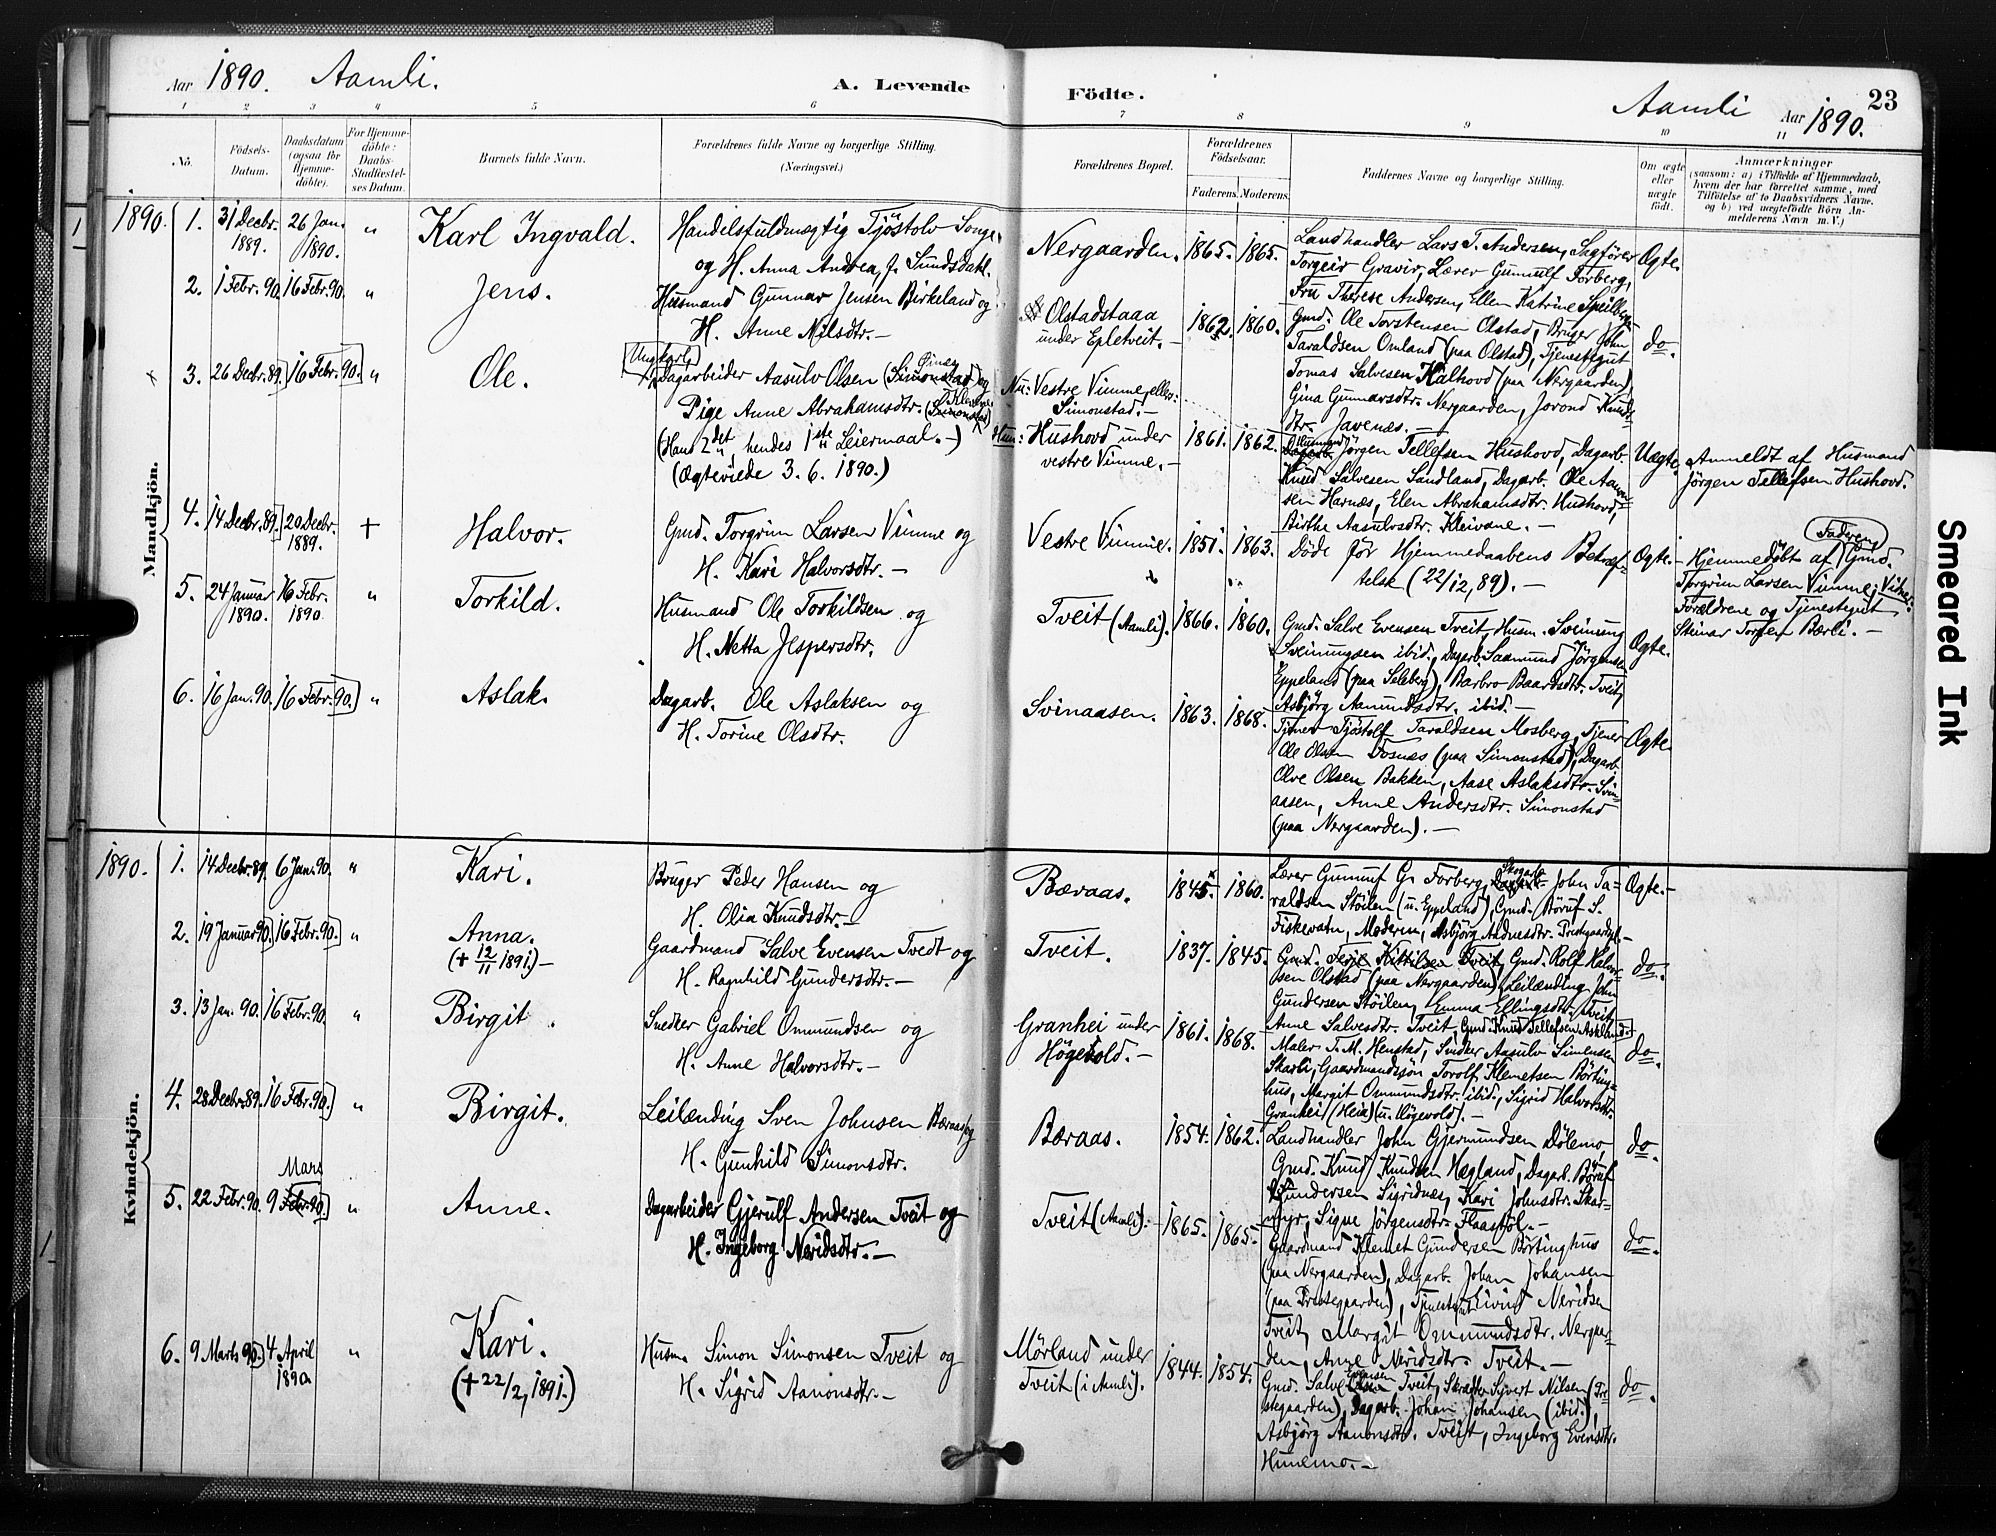 Aar 1890. Aamli. A. Levende Födte. Aamli Aar 1890. 23
1 2 3 4 5 6 7 8 9 10 11
No. Födsels-Datum. Daabsdatum (ogsaa for Hjemmedöbte). For Hjemmedöbte: Daabs-Stadfæstelses Datum. Barnets fulde Navn. Forældrenes fulde Navne og borgerlige Stilling. (Næringsvei.) Forældrenes Bopæl. Forældrenes Födselsaar. Faderens. Moderens. Faddernes Navne og borgerlige Stilling. Om ægte eller uægte födt. Anmærkninger
(saasom: a) i Tilfælde af Hjemmedaab, hvem der har forrettet samme, med Tilföielse af to Daabsvidners Navne. og b) ved uægtefödte Börn Anmelderens Navn m. V.)
Mandkjön.
1890. 1. 31 Decbr. 1889. 26 Jan. 1890. " Karl Ingvald.
Handelsfuldmægtig Tjöstolv Songe
og H. Anna Andrea, f. Sundsdahl.
Nergaarden. 1865. 1865.
Landhandler Lars T. Andersen, Sagförer
Torgeir Gravir, Lærer Gunnulf Forberg,
Fru Therese Andersen, Ellen Katrine
Ægte.
2. 1 Febr. 90. 16 Febr. 90. " Jens.
Husmand Gunnar Jensen Birkeland og
H. Anne Nilsdtr. —
Olstadstaaa
under Epletveit. —
1862. 1860.
Gmd. Ole Torstensen Olstad, Bruger John
Taraldsen Omland (paa Olstad), Tjenestegut
Tomas Salvesen Kalhovd (paa Nergaarden),
Gina Gunnarsdtr. Nergaarden, Jorond Knuds-
dtr. Javenæs. —
do.
3. 26 Decbr. 89. 16 Febr. 90. " Ole.
Ungkarl
Dagarbeider Aasulv Olsen (Simonstad) og
Pige Anne Abrahamsdtr. (Simonstad)
(Hans 2det, hendes 1ste Leiermaal. —)
(Ægteviede 3. 6. 1890.)
Nu: Vestre Vimme, ellers:
Simonstad. —
Hun: Hushovd under
vestre Vimme. —
1861. 1862.
Husmand Jörgen Tellefsen Hushovd, Dagarb.
Knud Salvesen Sandland, Dagarb. Ole Aanon-
sen Harnæs, Elen Abrahamsdtr. Hushovd,
Birthe Aasulvsdtr. Kleivane. —
Uægte.
Anmeldt af Husmand
Jörgen Tellefsen Hushovd.
4. 14 Decbr. 89. 20 Decbr. 1889. + Halvor.
Gmd. Torgrim Larsen Vimme og
H. Kari Halvorsdtr. —
Vestre Vimme. 1851. 1863.
Döde för Hjemmedaabens Bekræf-
telse (22/12, 89). —
Ægte.
Hjemmedöbt af Faderen Gmd.
Torgrim Larsen Vimme; Vidner:
Forældrene og Tjenestegut
Steinar Torsen Bærli. —
5. 24 Januar 1890. 16 Febr. 1890. " Torkild.
Husmand Ole Torkildsen og
H. Netta Jespersdtr.
Tveit (Aamli). 1866. 1860.
Gmd. Salve Evensen Tveit, Husm. Sveinung
Sveinungsen ibid., Dagarb. Saamund Jörgensen
Eppeland (paa Seleberg), Barbro Baardsdtr. Tveit,
Asbjörg Aamundsdtr. ibid. —
Ægte.
6. 16 Jan. 90. 16 Febr. 90. " Aslak.
Dagarb. Ole Aslaksen og
H. Torine Olsdtr.
Svinaasen. 1863. 1868.
Tjener Tjöstolf Taraldsen Mosberg, Tjener
Ole Olsen Fosnæs (paa Simonstad), Dagarb.
Olve Olsen Bakken, Aase Aslaksdtr. Svin-
aasen, Anne Andersdtr. Simonstad
(paa Nergaarden). —
Ægte.
Kvindekjön.
1890. 1. 14 Decbr. 89. 6 Jan. 90. " Kari.
Bruger Peder Hansen og
H. Olia Knudsdtr. —
Bæraas. 1845. 1860.
Lærer Gunnuf G. Forberg, Skogarb. John Ta-
raldsen Stöilen (u. Eppeland), Gmd. Böruf S.
Fiskevatn, Moderen, Asbjörg
Ægte. —
2. 19 Januar 90. 16 Febr. 90. " Anna.
(+ 12/11 1891.) —
Gaardmand Salve Evensen Tvedt og
H. Ragnhild Gundersdtr. —
Tveit. 1837. 1845.
Gmd. Terje Kittilsen Tveit, Gmd. Rolf Halvor-
sen Olstad (paa Nergaarden), Leilending John
Gundersen Stöilen, Emma Ellingsdtr. Tveit,
Anne Salvesdtr. Tveit,
do.
3. 13 Jan. 90. 16 Febr. 90. " Birgit.
Snedker Gabriel Ommundsen og
H. Anne Halvorsdtr. —
Granhei under
Högevold. —
1861. 1868.
Gmd. Knud Tellefsen Askland. —
Maler T. M. Henstad, Snedker Aasulv Simensen
Skarli, Gaardmandssön Torolf Klemetsen Börting-
hus, Margit Ommundsdtr. ibid., Sigrid Halvorsdtr.
Granhei (Heia) (u. Högevold). —
do.
4. 28 Decbr. 89. 16 Febr. 90. " Birgit.
Leilænding Sven Johnsen Bæraas og
H. Gunhild Simonsdtr.
Bæraas. 1854. 1862.
Landhandler John Gjermundsen Dölemo,
Gmd. Knut Knudsen Hægland, Dagarb. Böruf
Gundersen Sigridnæs, Kari Johnsdtr. Skar-
myr, Signe Jörgensdtr. Flaastöl. —
do.
5. 22 Febr. 90. 9 Mars Febr. 90. " Anne.
Dagarbeider Gjerulf Andersen Tveit og
H. Ingeborg Neridsdtr. —
Tveit (Aamli). 1865. 1865.
Gaardmand Klemet Gundersen Börtinghus
(paa Nergaarden), Dagarb. Johan Johansen
(paa Prestegaarden), Tjenestegut Eivind Neridsen
Tveit, Margit Ommundsdtr. Nergaar-
den, Anne Neridsdtr. Tveit. —
do.
6. 9 Marts 90. 4 April 1890. " Kari.
(+ 22/2, 1891.)
Husm. Simon Simonsen Tveit og
H. Sigrid Aanonsdtr. —
Mörland under
Tveit (i Aamli).
1844. 1854.
Gmd. Salve Evensen Tveit, Skrædder Syvert Nilsen (Pre-
stegaarden), Dagarb. Johan Johansen (ibid.),
Asbjörg Aanonsdtr. Tveit, Ingeborg Evensdtr.
Hunemo. —
do.
Smeared Ink